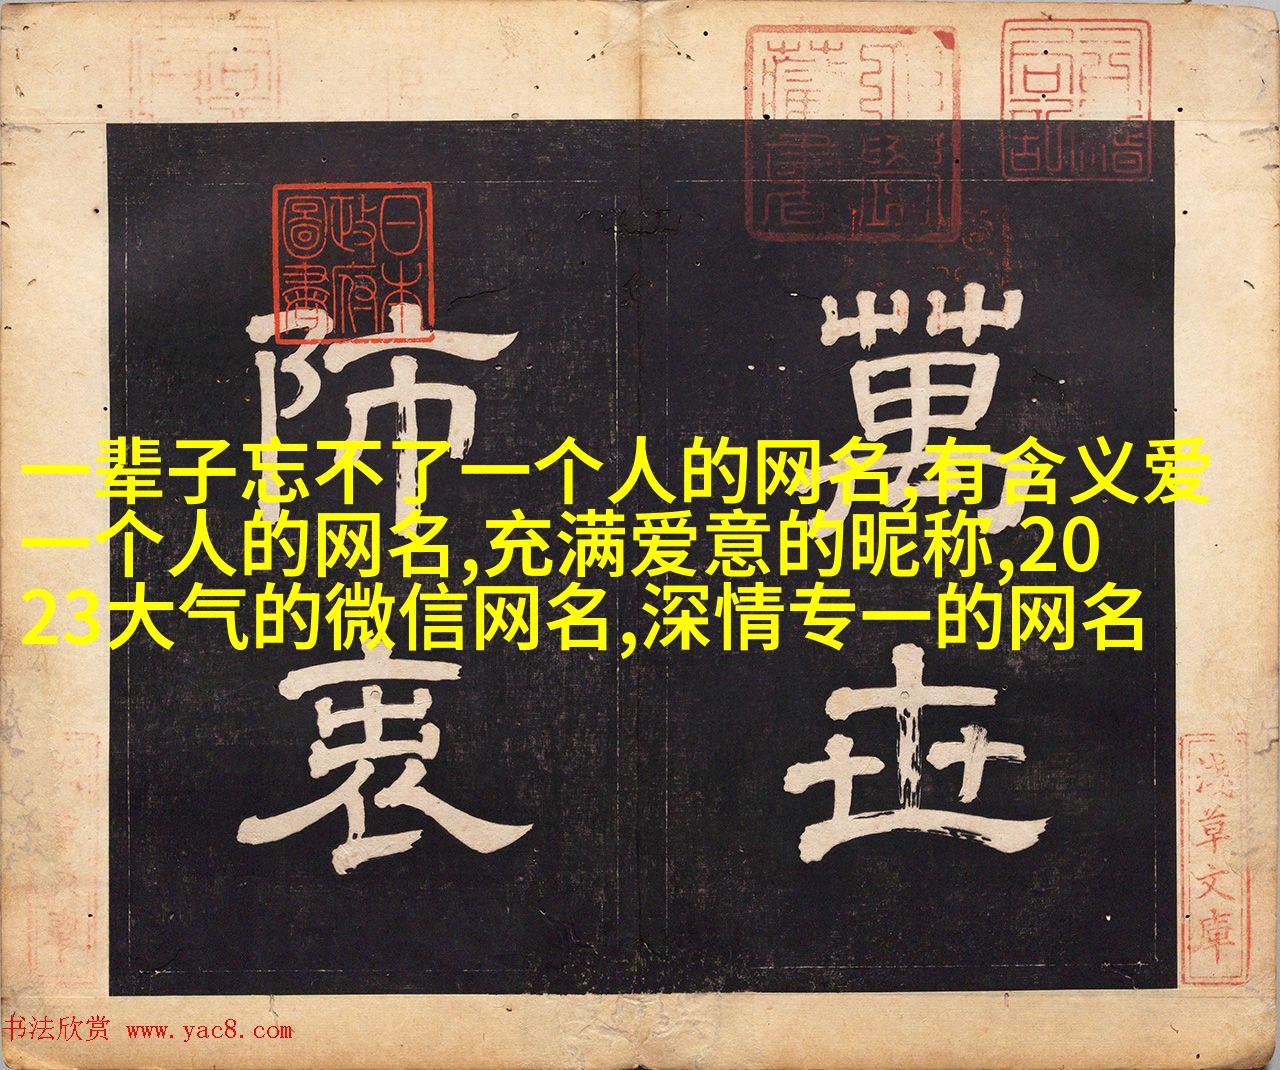 一辈子忘不了一个人的网名,有含义爱
一个人的网名,充满爱意的昵称,20
23大气的微信网名,深情专一的网名
萬世
師表
日本
政府
圖書
淺草文庫
书法欣赏 www.yac8.com